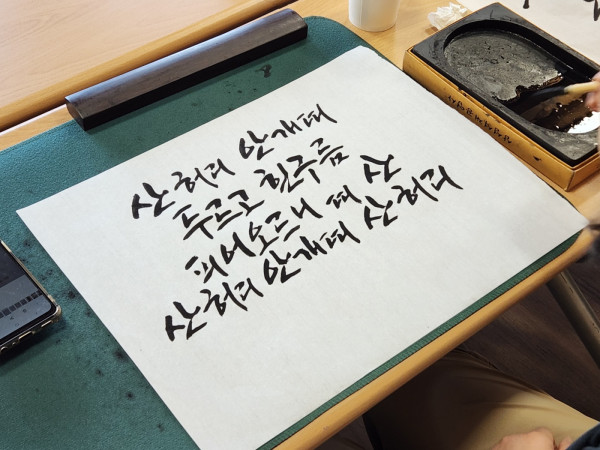 산허리 안개띠
두르고 흰구름
피어오르니 띠 산
산허리 안개띠 산허리